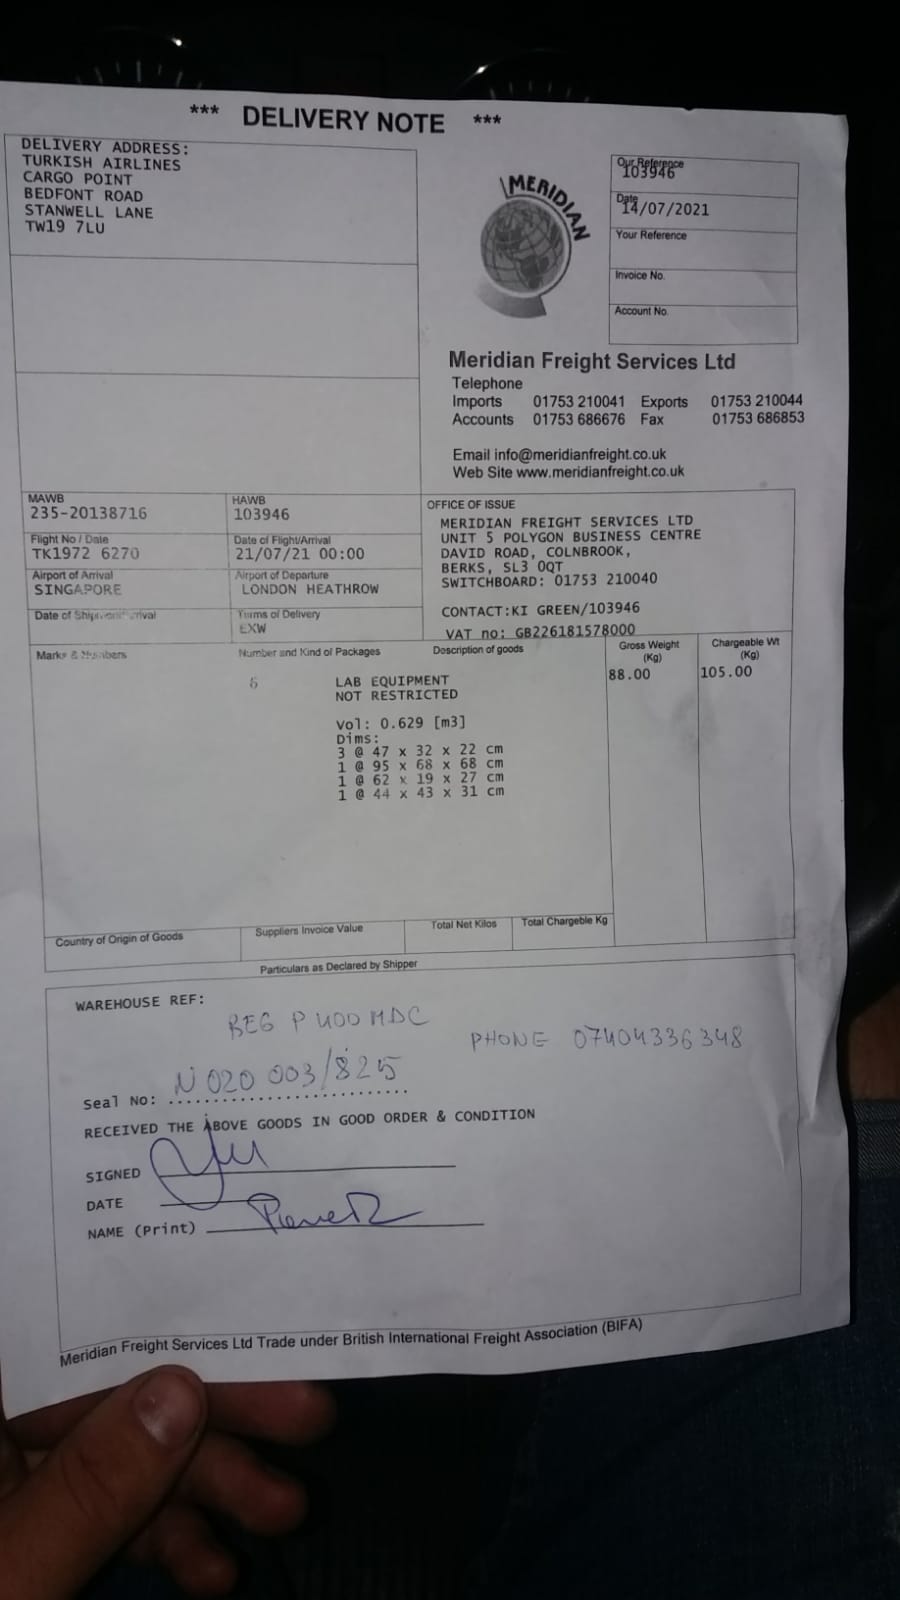 *** DELIVERY NOTE ***
DELIVERY ADDRESS:
TURKISH AIRLINES
CARGO POINT
BEDFONT ROAD
STANWELL LANE
TW19 7LU
MERIDIAN
Our Reference
103946
Date
14/07/2021
Your Reference
Invoice No.
Account No.
Meridian Freight Services Ltd
Telephone
Imports 01753 210041 Exports 01753 210044
Accounts 01753 686676 Fax 01753 686853
Email info@meridianfreight.co.uk
Web Site www.meridianfreight.co.uk
MAWB
235-20138716
HAWB
103946
Flight No / Date
TK1972 6270
Date of Flight/Arrival
21/07/21 00:00
Airport of Arrival
SINGAPORE
Airport of Departure
LONDON HEATHROW
Date of Shipment/Arrival
Terms of Delivery
EXW
OFFICE OF ISSUE
MERIDIAN FREIGHT SERVICES LTD
UNIT 5 POLYGON BUSINESS CENTRE
DAVID ROAD, COLNBROOK,
BERKS, SL3 0QT
SWITCHBOARD: 01753 210040
CONTACT:KI GREEN/103946
VAT no: GB226181578000
Marks & Numbers
Number and Kind of Packages
Description of goods
Gross Weight
(Kg)
Chargeable Wt
(Kg)
6
LAB EQUIPMENT
NOT RESTRICTED
88.00
105.00
Vol: 0.629 [m3]
Dims:
3 @ 47 x 32 x 22 cm
1 @ 95 x 68 x 68 cm
1 @ 62 x 19 x 27 cm
1 @ 44 x 43 x 31 cm
Country of Origin of Goods
Suppliers Invoice Value
Total Net Kilos
Total Chargeble Kg
Particulars as Declared by Shipper
WAREHOUSE REF:
BEG P400MDC
PHONE 07404336348
Seal No: N020 003/825
RECEIVED THE ABOVE GOODS IN GOOD ORDER & CONDITION
SIGNED
DATE
NAME (Print)
Meridian Freight Services Ltd Trade under British International Freight Association (BIFA)